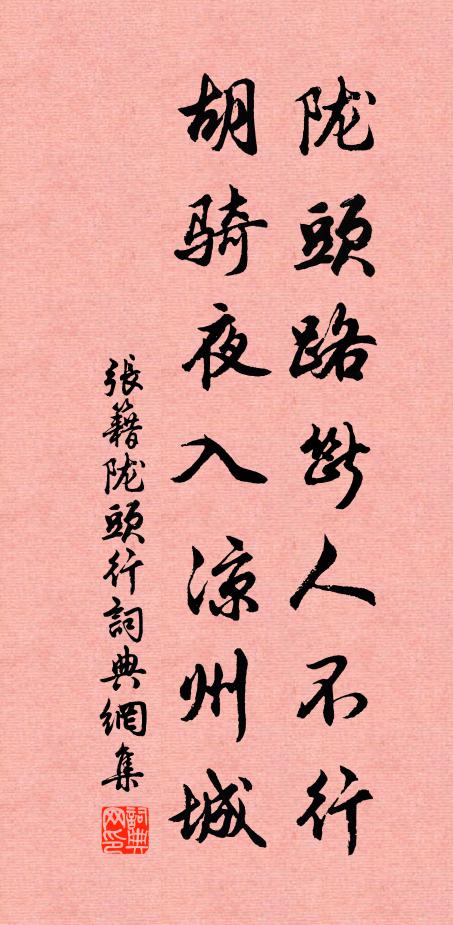 陇頭路斷人不行
胡騎夜入涼州城
張籍陇頭行詞典網集
詞典
网印